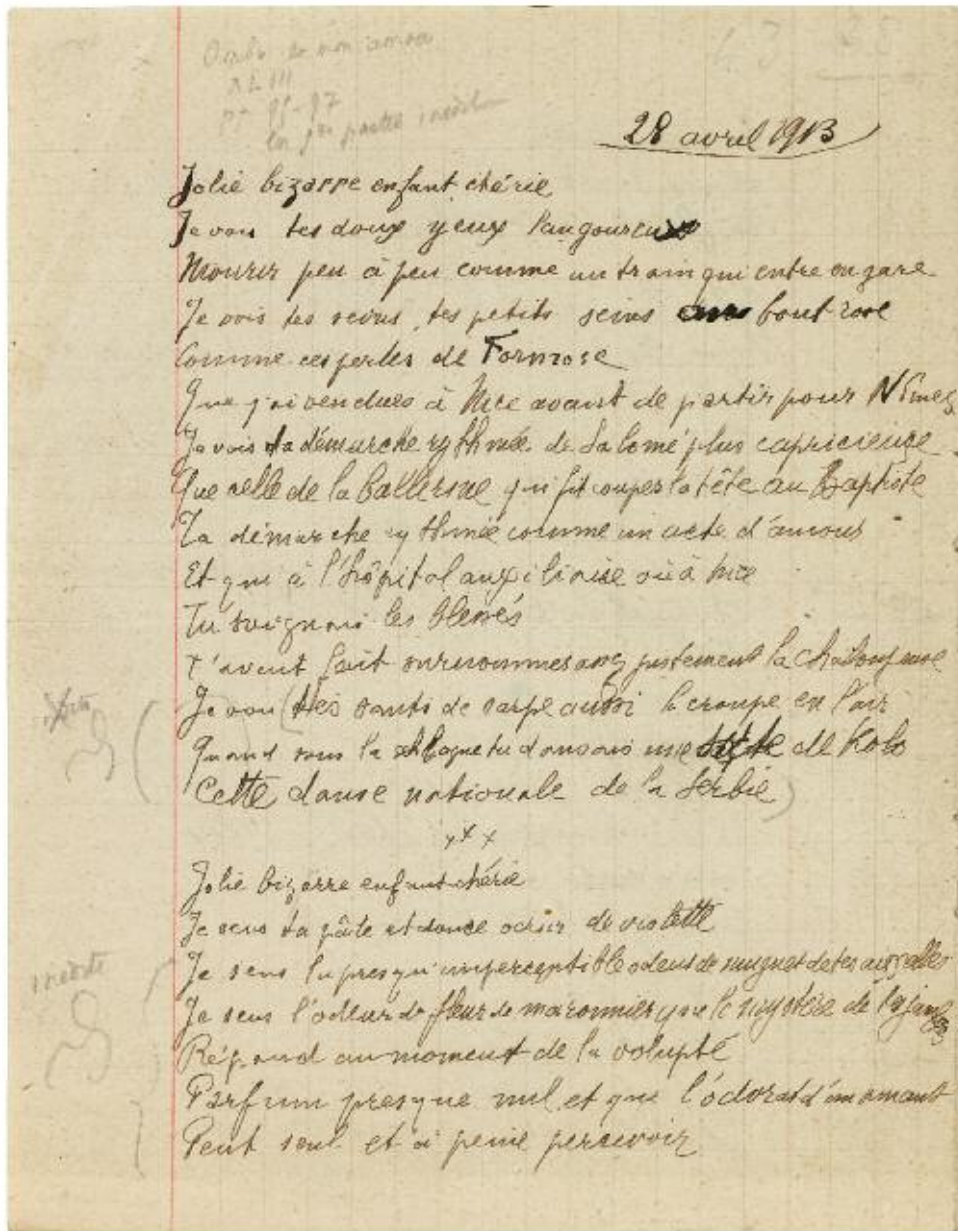 Ombre de mon amour
XLIII
pp 95-97
inédite
28 avril 1915
Jolie bizarre enfant chérie
Je vois tes doux yeux langoureux
Mourir peu à peu comme un train qui entre en gare
Je vois tes seins, tes petits seins au bout rose
Comme ces perles de Formose
Que j'ai vendues à Nice avant de partir pour Nîmes
Je vois ta démarche rythmée de Salomé plus capricieuse
Que celle de la ballerine qui fit couper la tête au Baptiste
Ta démarche rythmée comme un acte d'amour
Et qui à l'hôpital auxiliaire où à Nice
Tu soignais les blessés
T'avait fait surnommer assez justement la chaloupeuse
Je vois (tes sauts de carpe aussi la croupe en l'air
Quand sous la schlague tu dansais une sorte de Kolo
Cette danse nationale de la Serbie)
x x x
Jolie bizarre enfant chérie
Je sens ta pâle et douce odeur de violette
Je sens la presqu'imperceptible odeur de muguet de tes aisselles
Je sens l'odeur de fleur de maronnier que le mystère de tes jambes
Répand au moment de la volupté
inédite
Parfum presque nul et que l'odorat d'un amant
Peut seul et à peine percevoir